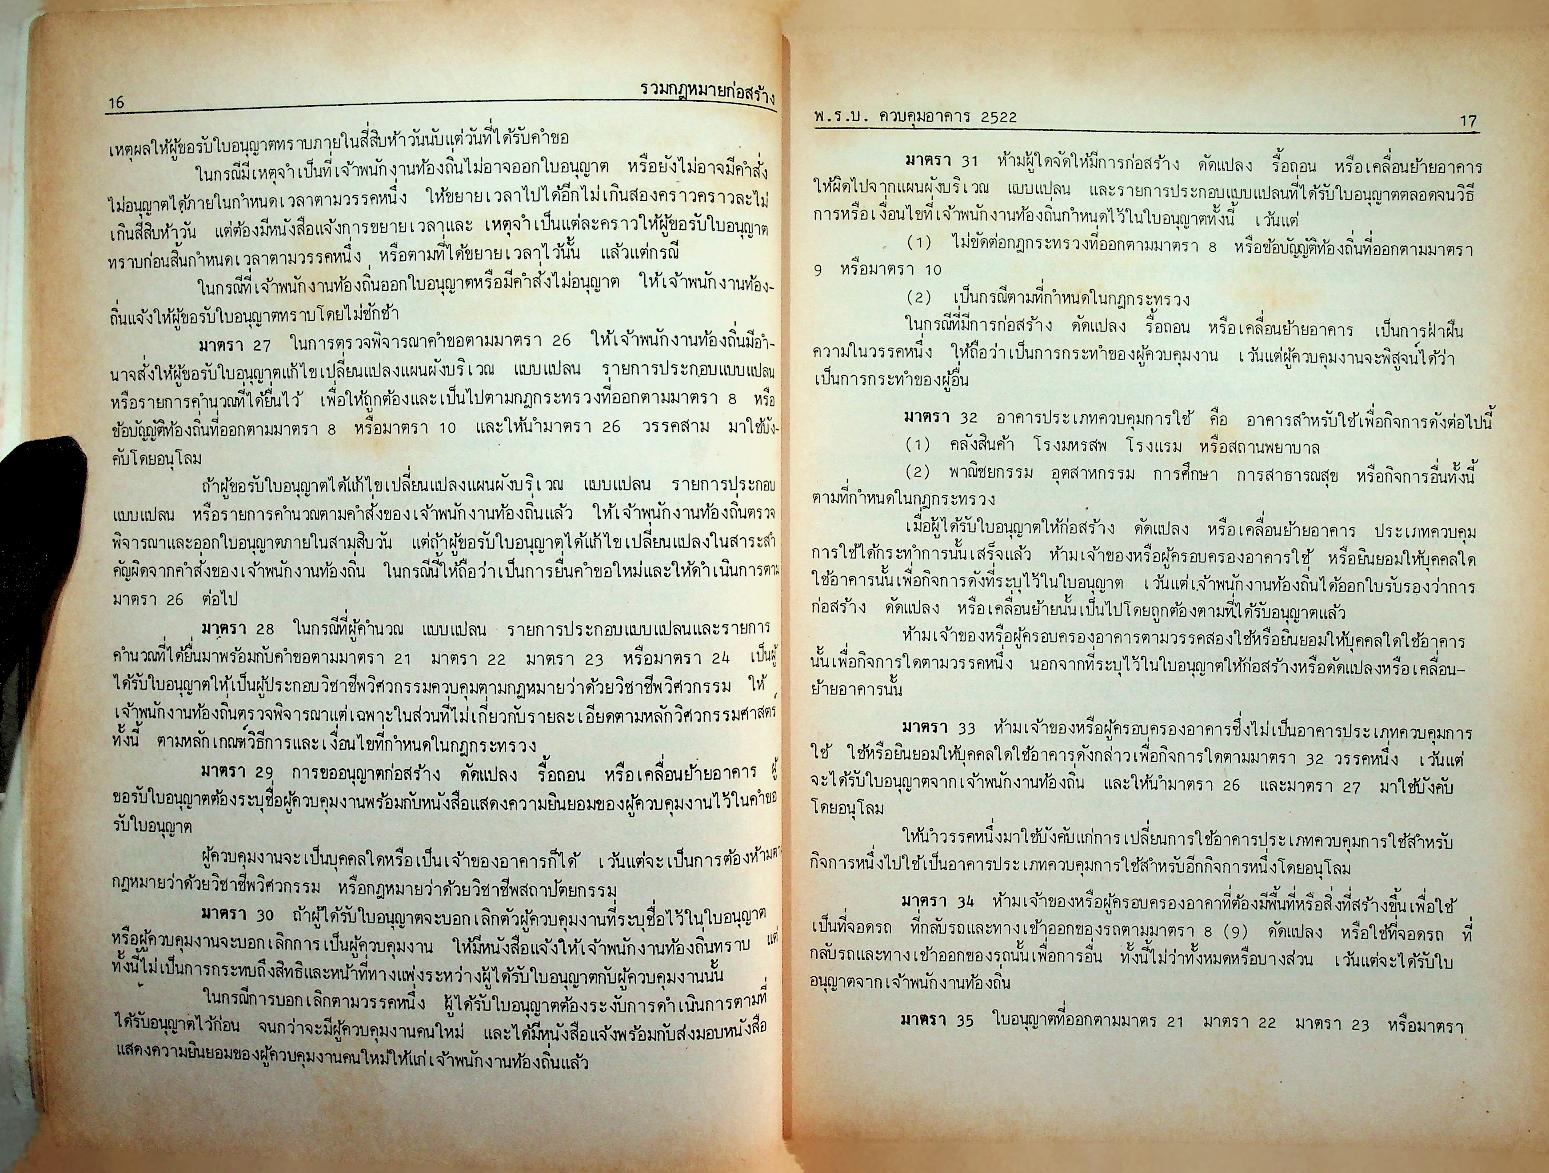 16
รวมกฎหมายก่อสร้าง
เหตุผลให้ผู้ขอรับใบอนุญาตทราบภายในสี่สิบห้าวันนับแต่วันที่ได้รับคำขอ
ในกรณีมีเหตุจำเป็นที่เจ้าพนักงานท้องถิ่นไม่อาจออกใบอนุญาต หรือยังไม่อาจมีคำสั่ง
ไม่อนุญาตได้ภายในกำหนดเวลาตามวรรคหนึ่ง ให้ขยายเวลาไปได้อีกไม่เกินสองคราวคราวละไม่
เกินสี่สิบห้าวัน แต่ต้องมีหนังสือแจ้งการขยายเวลาและ เหตุจำเป็นแต่ละคราวให้ผู้ขอรับใบอนุญาต
ทราบก่อนสิ้นกำหนดเวลาตามวรรคหนึ่ง หรือตามที่ได้ขยายเวลาไว้นั้น แล้วแต่กรณี
ในกรณีที่เจ้าพนักงานท้องถิ่นออกใบอนุญาตหรือมีคำสั่งไม่อนุญาต ให้เจ้าพนักงานท้อง-
ถิ่นแจ้งให้ผู้ขอรับใบอนุญาตทราบโดยไม่ชักช้า
มาตรา 27 ในการตรวจพิจารณาคำขอตามมาตรา 26 ให้เจ้าพนักงานท้องถิ่นมีอำ-
นาจสั่งให้ผู้ขอรับใบอนุญาตแก้ไขเปลี่ยนแปลงแผนผังบริเวณ แบบแปลน รายการประกอบแบบแปลน
หรือรายการคำนวณที่ได้ยื่นไว้ เพื่อให้ถูกต้องและเป็นไปตามกฎกระทรวงที่ออกตามมาตรา 8 หรือ
ข้อบัญญัติท้องถิ่นที่ออกตามมาตรา 8 หรือมาตรา 10 และให้นำมาตรา 26 วรรคสาม มาใช้บัง-
คับโดยอนุโลม
ถ้าผู้ขอรับใบอนุญาตได้แก้ไขเปลี่ยนแปลงแผนผังบริเวณ แบบแปลน รายการประกอบ
แบบแปลน หรือรายการคำนวณตามคำสั่งของเจ้าพนักงานท้องถิ่นแล้ว ให้เจ้าพนักงานท้องถิ่นตรวจ
พิจารณาและออกใบอนุญาตภายในสามสิบวัน แต่ถ้าผู้ขอรับใบอนุญาตได้แก้ไขเปลี่ยนแปลงในสาระสำ
คัญผิดจากคำสั่งของเจ้าพนักงานท้องถิ่น ในกรณีนี้ให้ถือว่าเป็นการยื่นคำขอใหม่และให้ดำเนินการตาม
มาตรา 26 ต่อไป
มาตรา 28 ในกรณีที่ผู้คำนวณ แบบแปลน รายการประกอบแบบแปลนและรายการ
คำนวณที่ได้ยื่นมาพร้อมกับคำขอตามมาตรา 21 มาตรา 22 มาตรา 23 หรือมาตรา 24 เป็นผู้
ได้รับใบอนุญาตให้เป็นผู้ประกอบวิชาชีพวิศวกรรมควบคุมตามกฎหมายว่าด้วยวิชาชีพวิศวกรรม ให้
เจ้าพนักงานท้องถิ่นตรวจพิจารณาแต่เฉพาะในส่วนที่ไม่เกี่ยวกับรายละเอียดตามหลักวิศวกรรมศาสตร์
ทั้งนี้ ตามหลักเกณฑ์วิธีการและเงื่อนไขที่กำหนดในกฎกระทรวง
มาตรา 29 การขออนุญาตก่อสร้าง ดัดแปลง รื้อถอน หรือเคลื่อนย้ายอาคาร ผู้
ขอรับใบอนุญาตต้องระบุชื่อผู้ควบคุมงานพร้อมกับหนังสือแสดงความยินยอมของผู้ควบคุมงานไว้ในคำขอ
รับใบอนุญาต
ผู้ควบคุมงานจะเป็นบุคคลใดหรือเป็นเจ้าของอาคารก็ได้ เว้นแต่จะเป็นการต้องห้ามตาม
กฎหมายว่าด้วยวิชาชีพวิศวกรรม หรือกฎหมายว่าด้วยวิชาชีพสถาปัตยกรรม
มาตรา 30 ถ้าผู้ได้รับใบอนุญาตจะบอกเลิกตัวผู้ควบคุมงานที่ระบุชื่อไว้ในใบอนุญาต
หรือผู้ควบคุมงานจะบอกเลิกการเป็นผู้ควบคุมงาน ให้มีหนังสือแจ้งให้เจ้าพนักงานท้องถิ่นทราบ แต่
ทั้งนี้ไม่เป็นการกระทบถึงสิทธิและหน้าที่ทางแพ่งระหว่างผู้ได้รับใบอนุญาตกับผู้ควบคุมงานนั้น
ในกรณีการบอกเลิกตามวรรคหนึ่ง ผู้ได้รับใบอนุญาตต้องระงับการดำเนินการตามที่
ได้รับอนุญาตไว้ก่อน จนกว่าจะมีผู้ควบคุมงานคนใหม่ และได้มีหนังสือแจ้งพร้อมกับส่งมอบหนังสือ
แสดงความยินยอมของผู้ควบคุมงานคนใหม่ให้แก่เจ้าพนักงานท้องถิ่นแล้ว
พ.ร.บ. ควบคุมอาคาร 2522
17
มาตรา 31 ห้ามผู้ใดจัดให้มีการก่อสร้าง ดัดแปลง รื้อถอน หรือเคลื่อนย้ายอาคาร
ให้ผิดไปจากแผนผังบริเวณ แบบแปลน และรายการประกอบแบบแปลนที่ได้รับใบอนุญาตตลอดจนวิธี
การหรือเงื่อนไขที่เจ้าพนักงานท้องถิ่นกำหนดไว้ในใบอนุญาตทั้งนี้ เว้นแต่
(1) ไม่ขัดต่อกฎกระทรวงที่ออกตามมาตรา 8 หรือข้อบัญญัติท้องถิ่นที่ออกตามมาตรา
9 หรือมาตรา 10
(2) เป็นกรณีตามที่กำหนดในกฎกระทรวง
ในกรณีที่มีการก่อสร้าง ดัดแปลง รื้อถอน หรือเคลื่อนย้ายอาคาร เป็นการฝ่าฝืน
ความในวรรคหนึ่ง ให้ถือว่าเป็นการกระทำของผู้ควบคุมงาน เว้นแต่ผู้ควบคุมงานจะพิสูจน์ได้ว่า
เป็นการกระทำของผู้อื่น
มาตรา 32 อาคารประเภทควบคุมการใช้ คือ อาคารสำหรับใช้เพื่อกิจการดังต่อไปนี้
(1) คลังสินค้า โรงมหรสพ โรงแรม หรือสถานพยาบาล
(2) พาณิชยกรรม อุตสาหกรรม การศึกษา การสาธารณสุข หรือกิจการอื่นทั้งนี้
ตามที่กำหนดในกฎกระทรวง
เมื่อผู้ได้รับใบอนุญาตให้ก่อสร้าง ดัดแปลง หรือเคลื่อนย้ายอาคาร ประเภทควบคุม
การใช้ได้กระทำการนั้นเสร็จแล้ว ห้ามเจ้าของหรือผู้ครอบครองอาคารใช้ หรือยินยอมให้บุคคลใด
ใช้อาคารนั้นเพื่อกิจการดังที่ระบุไว้ในใบอนุญาต เว้นแต่เจ้าพนักงานท้องถิ่นได้ออกใบรับรองว่าการ
ก่อสร้าง ดัดแปลง หรือเคลื่อนย้ายนั้นเป็นไปโดยถูกต้องตามที่ได้รับอนุญาตแล้ว
ห้ามเจ้าของหรือผู้ครอบครองอาคารตามวรรคสองใช้หรือยินยอมให้บุคคลใดใช้อาคาร
นั้นเพื่อกิจการใดตามวรรคหนึ่ง นอกจากที่ระบุไว้ในใบอนุญาตให้ก่อสร้างหรือดัดแปลงหรือเคลื่อน-
ย้ายอาคารนั้น
มาตรา 33 ห้ามเจ้าของหรือผู้ครอบครองอาคารซึ่งไม่เป็นอาคารประเภทควบคุมการ
ใช้ ใช้หรือยินยอมให้บุคคลใดใช้อาคารดังกล่าวเพื่อกิจการใดตามมาตรา 32 วรรคหนึ่ง เว้นแต่
จะได้รับใบอนุญาตจากเจ้าพนักงานท้องถิ่น และให้นำมาตรา 26 และมาตรา 27 มาใช้บังคับ
โดยอนุโลม
ให้นำวรรคหนึ่งมาใช้บังคับแก่การเปลี่ยนการใช้อาคารประเภทควบคุมการใช้สำหรับ
กิจการหนึ่งไปใช้เป็นอาคารประเภทควบคุมการใช้สำหรับอีกกิจการหนึ่งโดยอนุโลม
มาตรา 34 ห้ามเจ้าของหรือผู้ครอบครองอาคาที่ต้องมีพื้นที่หรือสิ่งที่สร้างขึ้นเพื่อใช้
เป็นที่จอดรถ ที่กลับรถและทางเข้าออกของรถตามมาตรา 8 (9) ดัดแปลง หรือใช้ที่จอดรถ ที่
กลับรถและทางเข้าออกของรถนั้นเพื่อการอื่น ทั้งนี้ไม่ว่าทั้งหมดหรือบางส่วน เว้นแต่จะได้รับใบ
อนุญาตจากเจ้าพนักงานท้องถิ่น
มาตรา 35 ใบอนุญาตที่ออกตามมาตร 21 มาตรา 22 มาตรา 23 หรือมาตรา